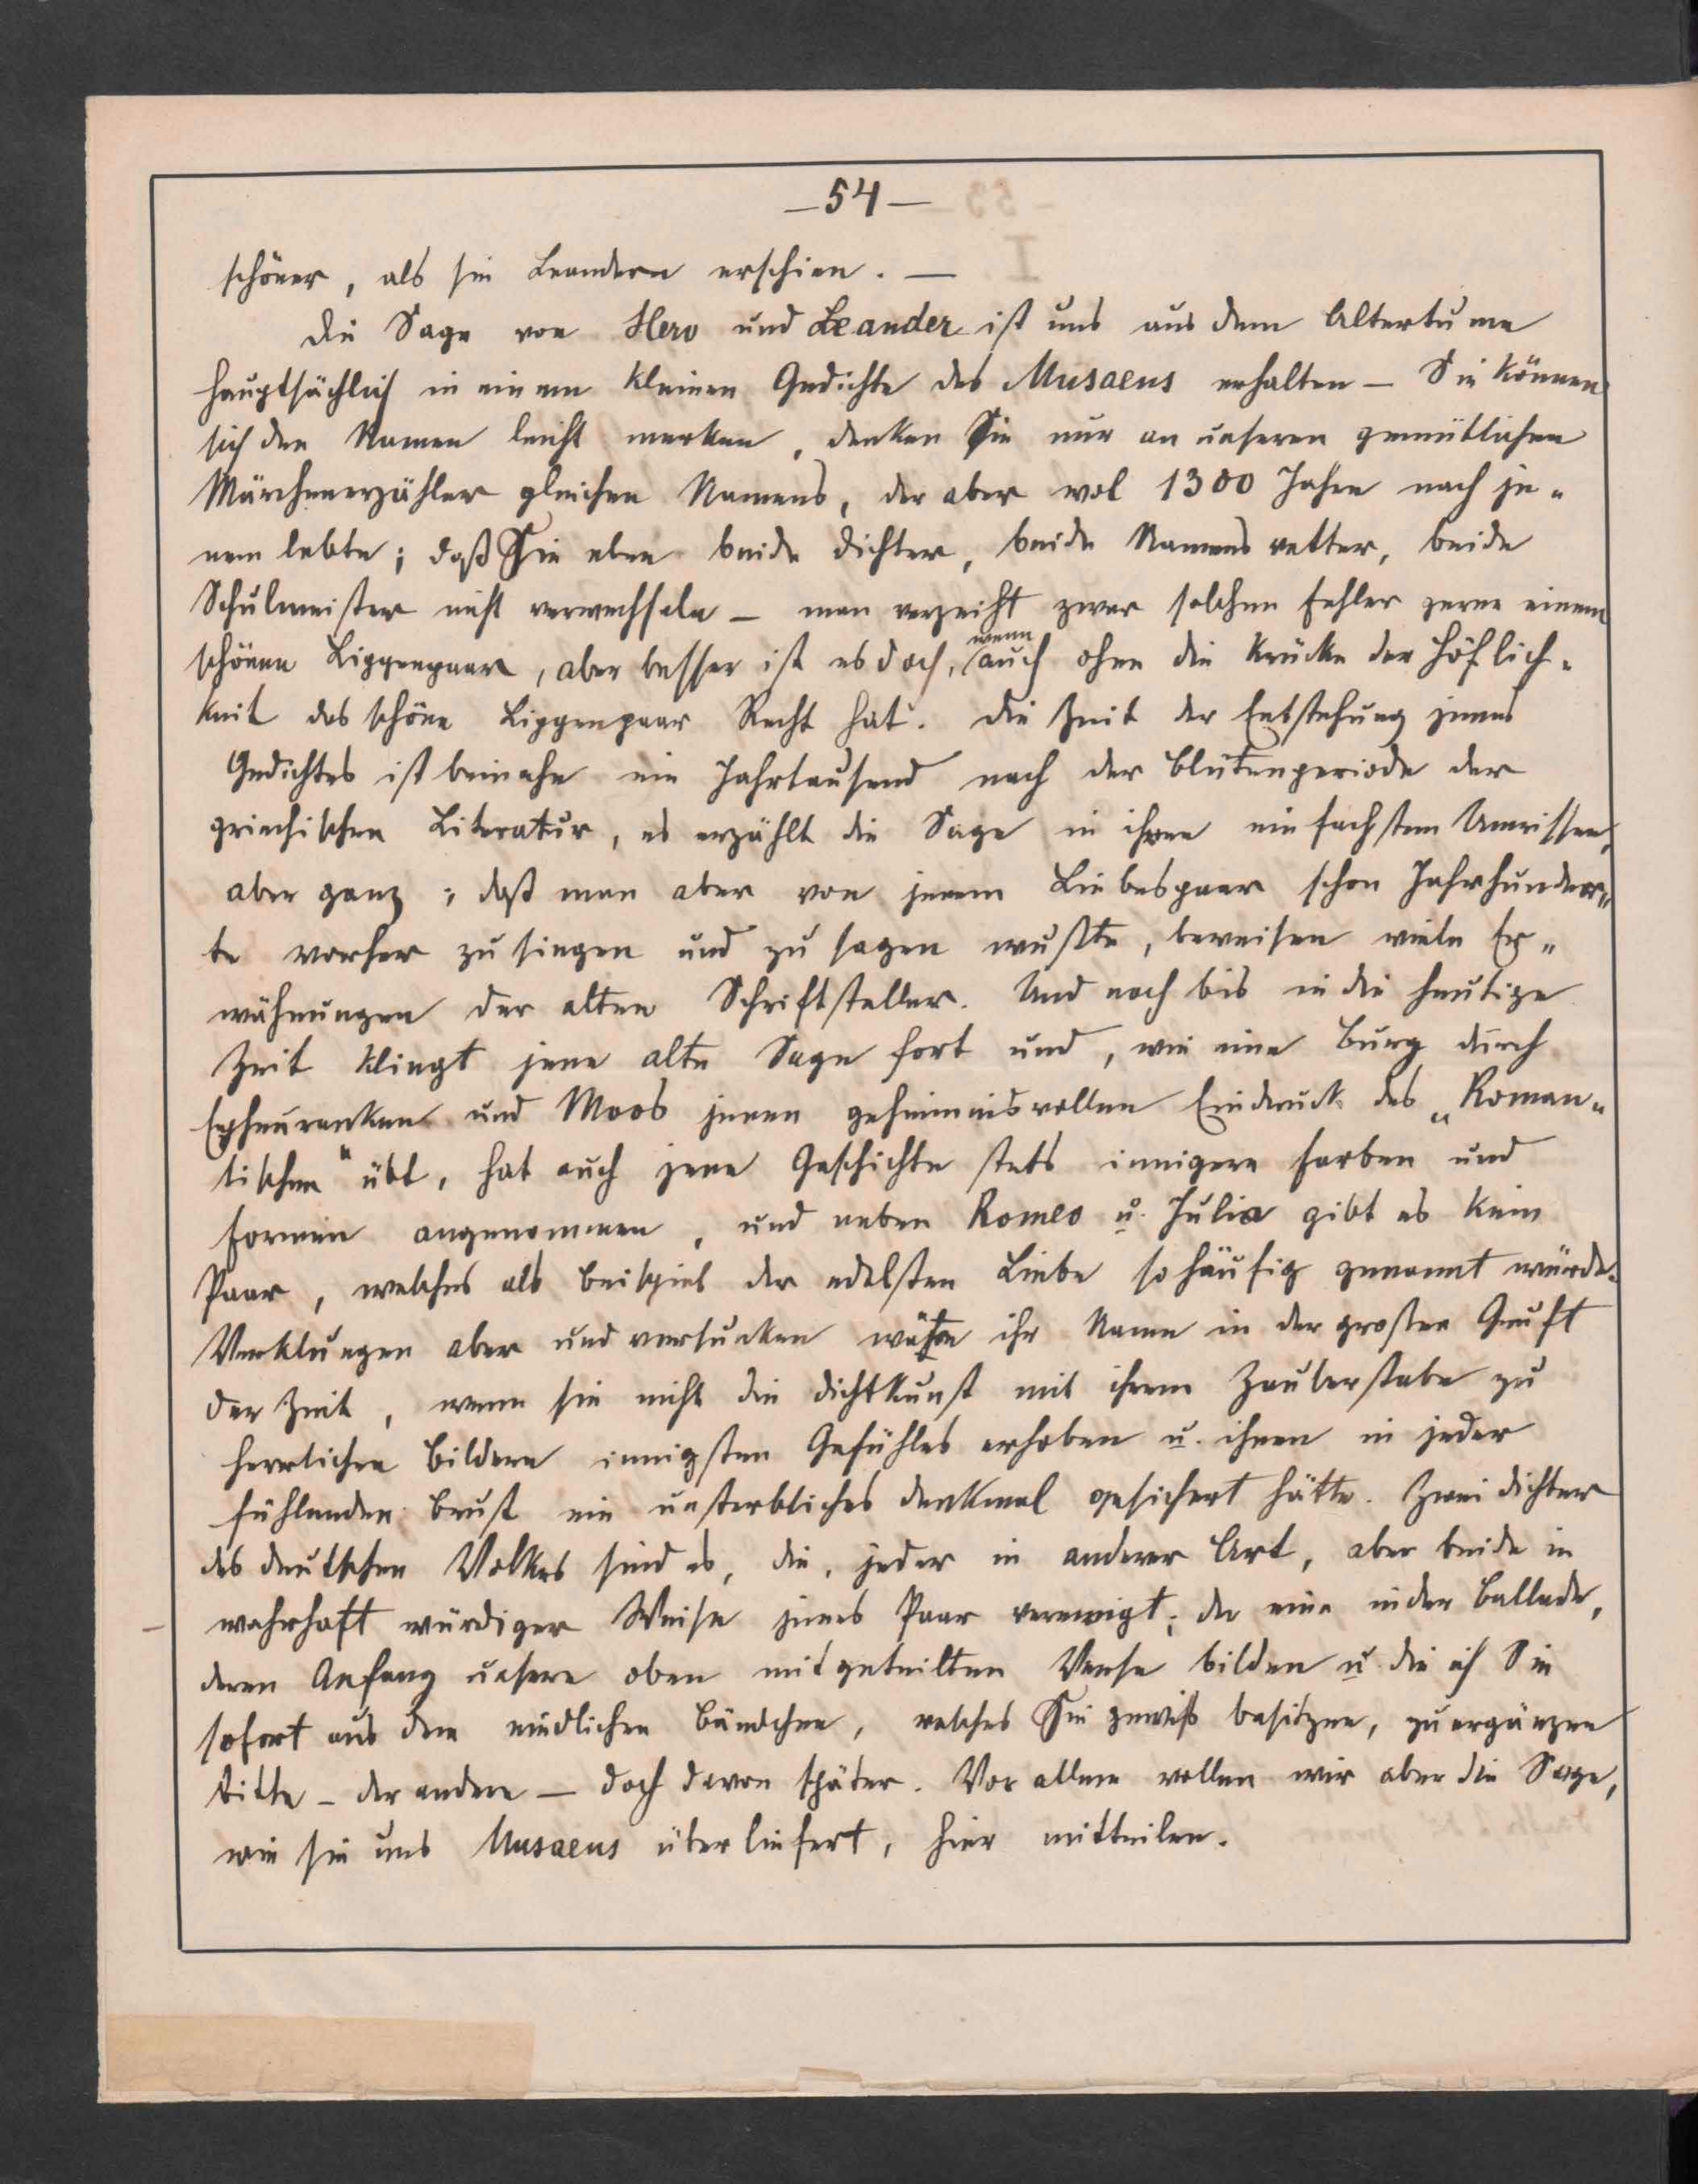 —54—
schöner, als sie Leandern erschien. —
Die Sage von Hero und Leander ist uns aus dem Altertume
hauptsächlich in einem kleinen Gedichte des Musaeus erhalten — Sie können
sich den Namen leicht merken, denken Sie nur an unseren gemütlichen
Märchenerzähler gleichen Namens, der aber wol 1300 Jahre nach je-
nem lebte; daß Sie eben beide Dichter, beide Namensvetter, beide
Schulmeister nicht verwechseln — man verzeiht zwar solchen Fehler gerne einem
schönen Lippenpaar, aber besser ist es doch, wenn auch ohne die Krücke der Höflich-
keit das schöne Lippenpaar Recht hat. Die Zeit der Entstehung jenes
Gedichtes ist beinahe ein Jahrtausend nach der Blütenperiode der
griechischen Literatur, es erzählt die Sage in ihren einfachsten Umrissen,
aber ganz; daß man aber von jenem Liebespaar schon Jahrhunder-
te vorher zu singen und zu sagen wußte, beweisen viele Er-
wähnungen der alten Schriftsteller. Und noch bis in die heutige
Zeit klingt jene alte Sage fort und, wie eine Burg durch
Epheuranken und Moos jenen geheimnisvollen Eindruck des „Roman-
tischen“ übt, hat auch jene Geschichte stets innigere Farben und
Formen angenommen, und neben Romeo u. Julia gibt es kein
Paar, welches als Beispiel der edelsten Liebe so häufig genannt würde.
Verklungen aber und versunken wäre ihr Name in der großen Gruft
der Zeit, wenn sie nicht die Dichtkunst mit ihrem Zauberstabe zu
herrlichen Bildern innigsten Gefühles erhoben u. ihnen in jeder
fühlenden Brust ein unsterbliches Denkmal gesichert hätte. Zwei Dichter
des deutschen Volkes sind es, die, jeder in anderer Art, aber beide in
wahrhaft würdiger Weise jenes Paar verewigt; der eine in der Ballade,
deren Anfang unsere oben mitgeteilten Verse bilden u. die ich Sie
sofort aus dem niedlichen Bändchen, welches Sie gewiß besitzen, zu ergänzen
bitte — der andere — doch davon später. Vor allem wollen wir aber die Sage,
wie sie uns Musaeus überliefert, hier mitteilen.